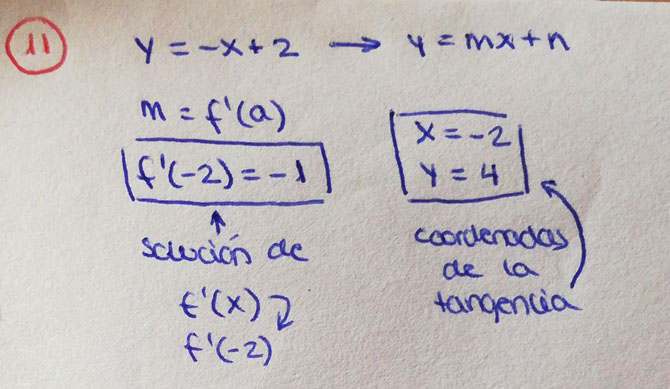 11
y = -x + 2 → y = mx + n
m = f'(a)
f'(-2) = -1
x = -2
y = 4
solución de
f'(x)
f'(-2)
coordenadas
de la
tangencia